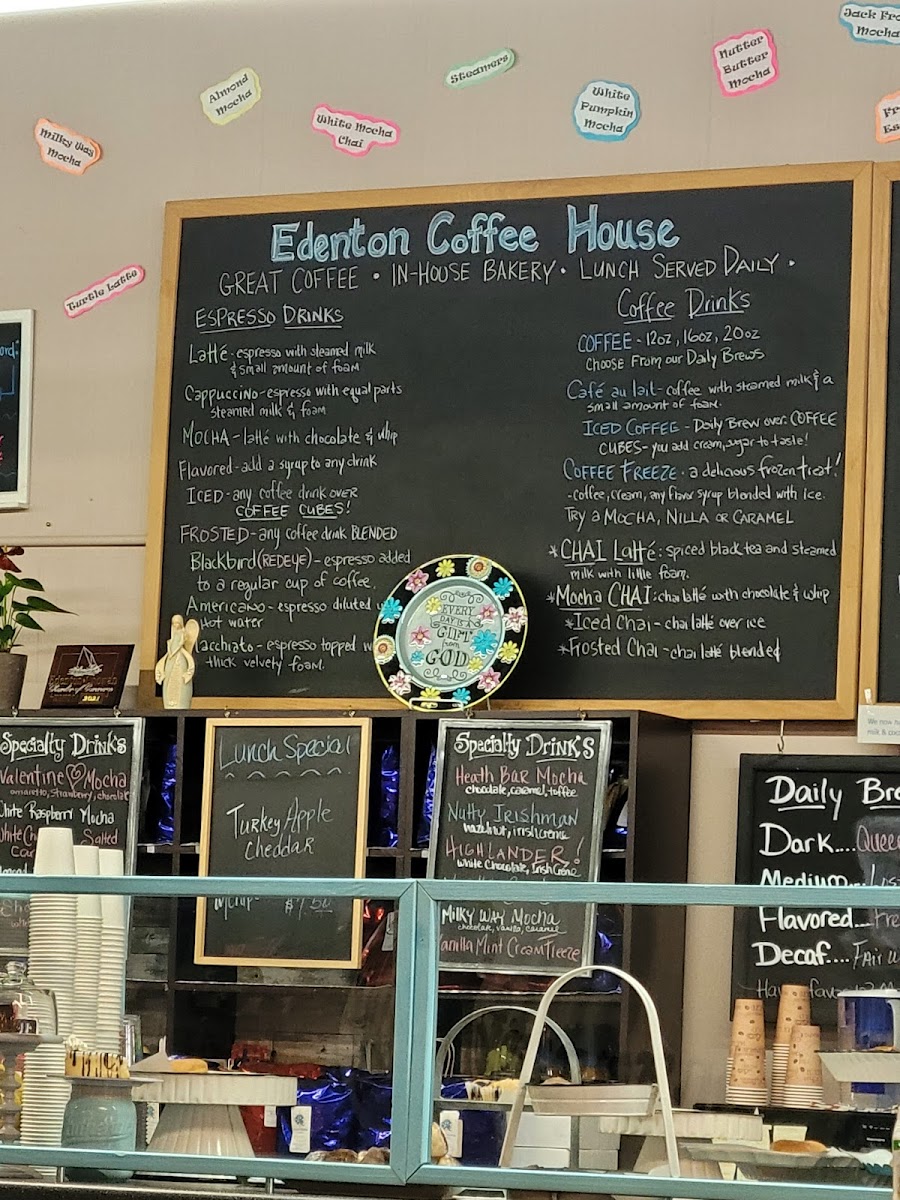 Jack Fro
Mocha
Nutter
Butter
Mocha
Steamers
Almond
Mocha
White
Pumpkin
Mocha
White Mocha
Chai
Milky Way
Mocha
Turtle Latte
Edenton Coffee House
GREAT COFFEE • IN-HOUSE BAKERY • LUNCH SERVED DAILY •
ESPRESSO DRINKS
Latté - espresso with steamed milk
& small amount of foam
Cappuccino - espresso with equal parts
steamed milk & foam
MOCHA - latté with chocolate & whip
Flavored - add a syrup to any drink
ICED - any coffee drink OVER
COFFEE CUBES!
FROSTED - any coffee drink BLENDED
Blackbird (REDEYE) - espresso added
to a regular cup of coffee.
Americano - espresso diluted w
Hot water
acchiato - espresso topped w
thick velvety foam.
Coffee Drinks
COFFEE - 12oz, 16oz, 20oz
CHOOSE FROM our DAILY BREWS
Café au lait - coffee with steamed milk & a
small amount of foam.
ICED COFFEE - Daily Brew over COFFEE
CUBES - you add cream, sugar to taste!
COFFEE FREEZE - a delicious frozen treat!
- coffee, cream, any flavor syrup blended with ice.
TRY A MOCHA, NILLA OR CARAMEL
* CHAI Latté: spiced black tea and steamed
milk with little foam.
* Mocha CHAI: chai latté with chocolate & whip
* Iced Chai - chai latté over ice
* Frosted Chai - chai latté blended
EVERY
DAY IS A
GIFT
from
GOD
Chamber of Commerce
2021
We now ha
milk & coc
Specialty Drinks
Valentine Mocha
amaretto, strawberry, chocolate
White Raspberry Mocha
White Ch Salted
Car
Lunch Special
Turkey Apple
Cheddar
$7.50
Specialty Drinks
Heath Bar Mocha
chocolate, caramel, toffee
Nutty Irishman
hazelnut, irish creme
HIGHLANDER!
White Chocolate, Irish Creme
Milky Way Mocha
chocolate, vanilla, caramel
Vanilla Mint Cream Freeze
Daily Bre
Dark.... Quee
Medium...
Flavored.... Fre
Decaf.... Fair W